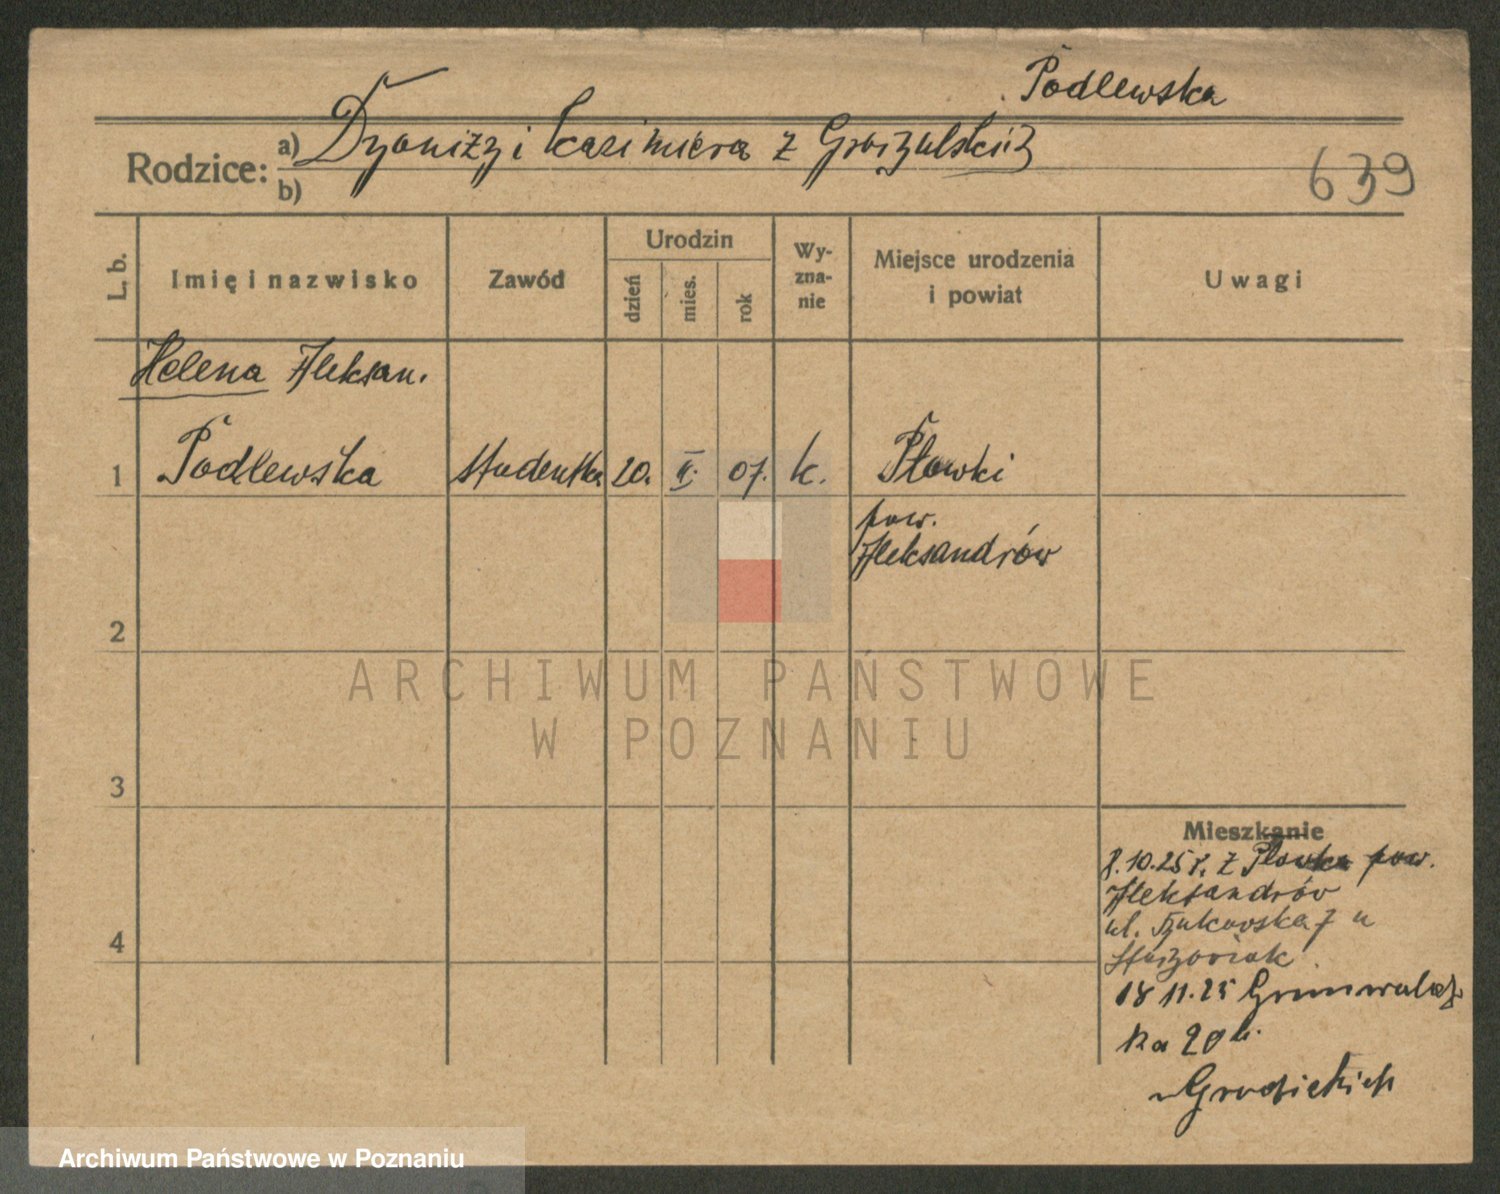 Podlewska
Rodzice: a) Dyonizy i Kazimiera z
b)
639
L. b.
Imię i nazwisko
Zawód
Urodzin
dzień
mies.
rok
Wy-
zna-
nie
Miejsce urodzenia
i powiat
Uwagi
Helena Aleksan.
1 Podlewska studentka 20. II. 07. k. Pławki
pow.
Aleksandrów
2
3
4
Mieszkanie
8.10.25 r. z pow.
Aleksandrów
ul. Żukowska 7 u
18 11.25 Grunwaldz
ka 20
u Grodzickich
ARCHIWUM PAŃSTWOWE
W POZNANIU
Archiwum Państwowe w Poznaniu